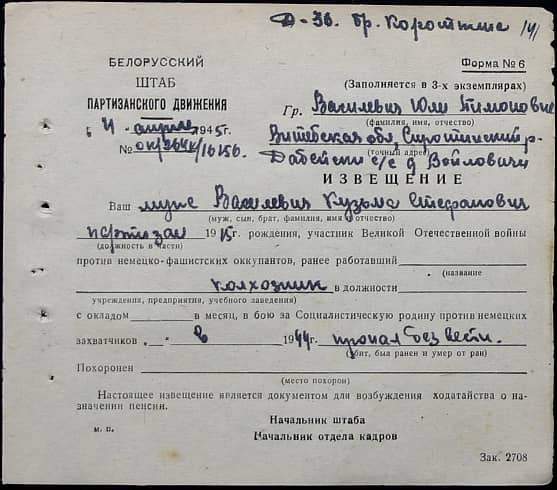 Д-36. бр. Короткина 141
БЕЛОРУССКИЙ
ШТАБ
ПАРТИЗАНСКОГО ДВИЖЕНИЯ
„4" апреля 1945г.
№ ок/364к/16156.
Форма № 6
(Заполняется в 3-х экземплярах)
Гр. Василевич Юле Тимоновне
(фамилия, имя, отчество)
Витебская обл, Сиротинский р-
(точный адрес)
с/с д. Войловичи
ИЗВЕЩЕНИЕ
Ваш муж Василевич Кузьма Стефанович
(муж, сын, брат, фамилия, имя, отчество)
партизан 1915г. рождения, участник Великой Отечественной войны
(должность в части)
против немецко-фашистских оккупантов, ранее работавший
(название
колхозник в должности
учреждения, предприятия, учебного заведения)
с окладом в месяц, в бою за Социалистическую родину против немецких
захватчиков 1944г. пропал без вести.
(убит, был ранен и умер от ран)
Похоронен
(место похорон)
Настоящее извещение является документом для возбуждения ходатайства о на-
значении пенсии.
Начальник штаба
м. п.
Начальник отдела кадров
Зак. 2708